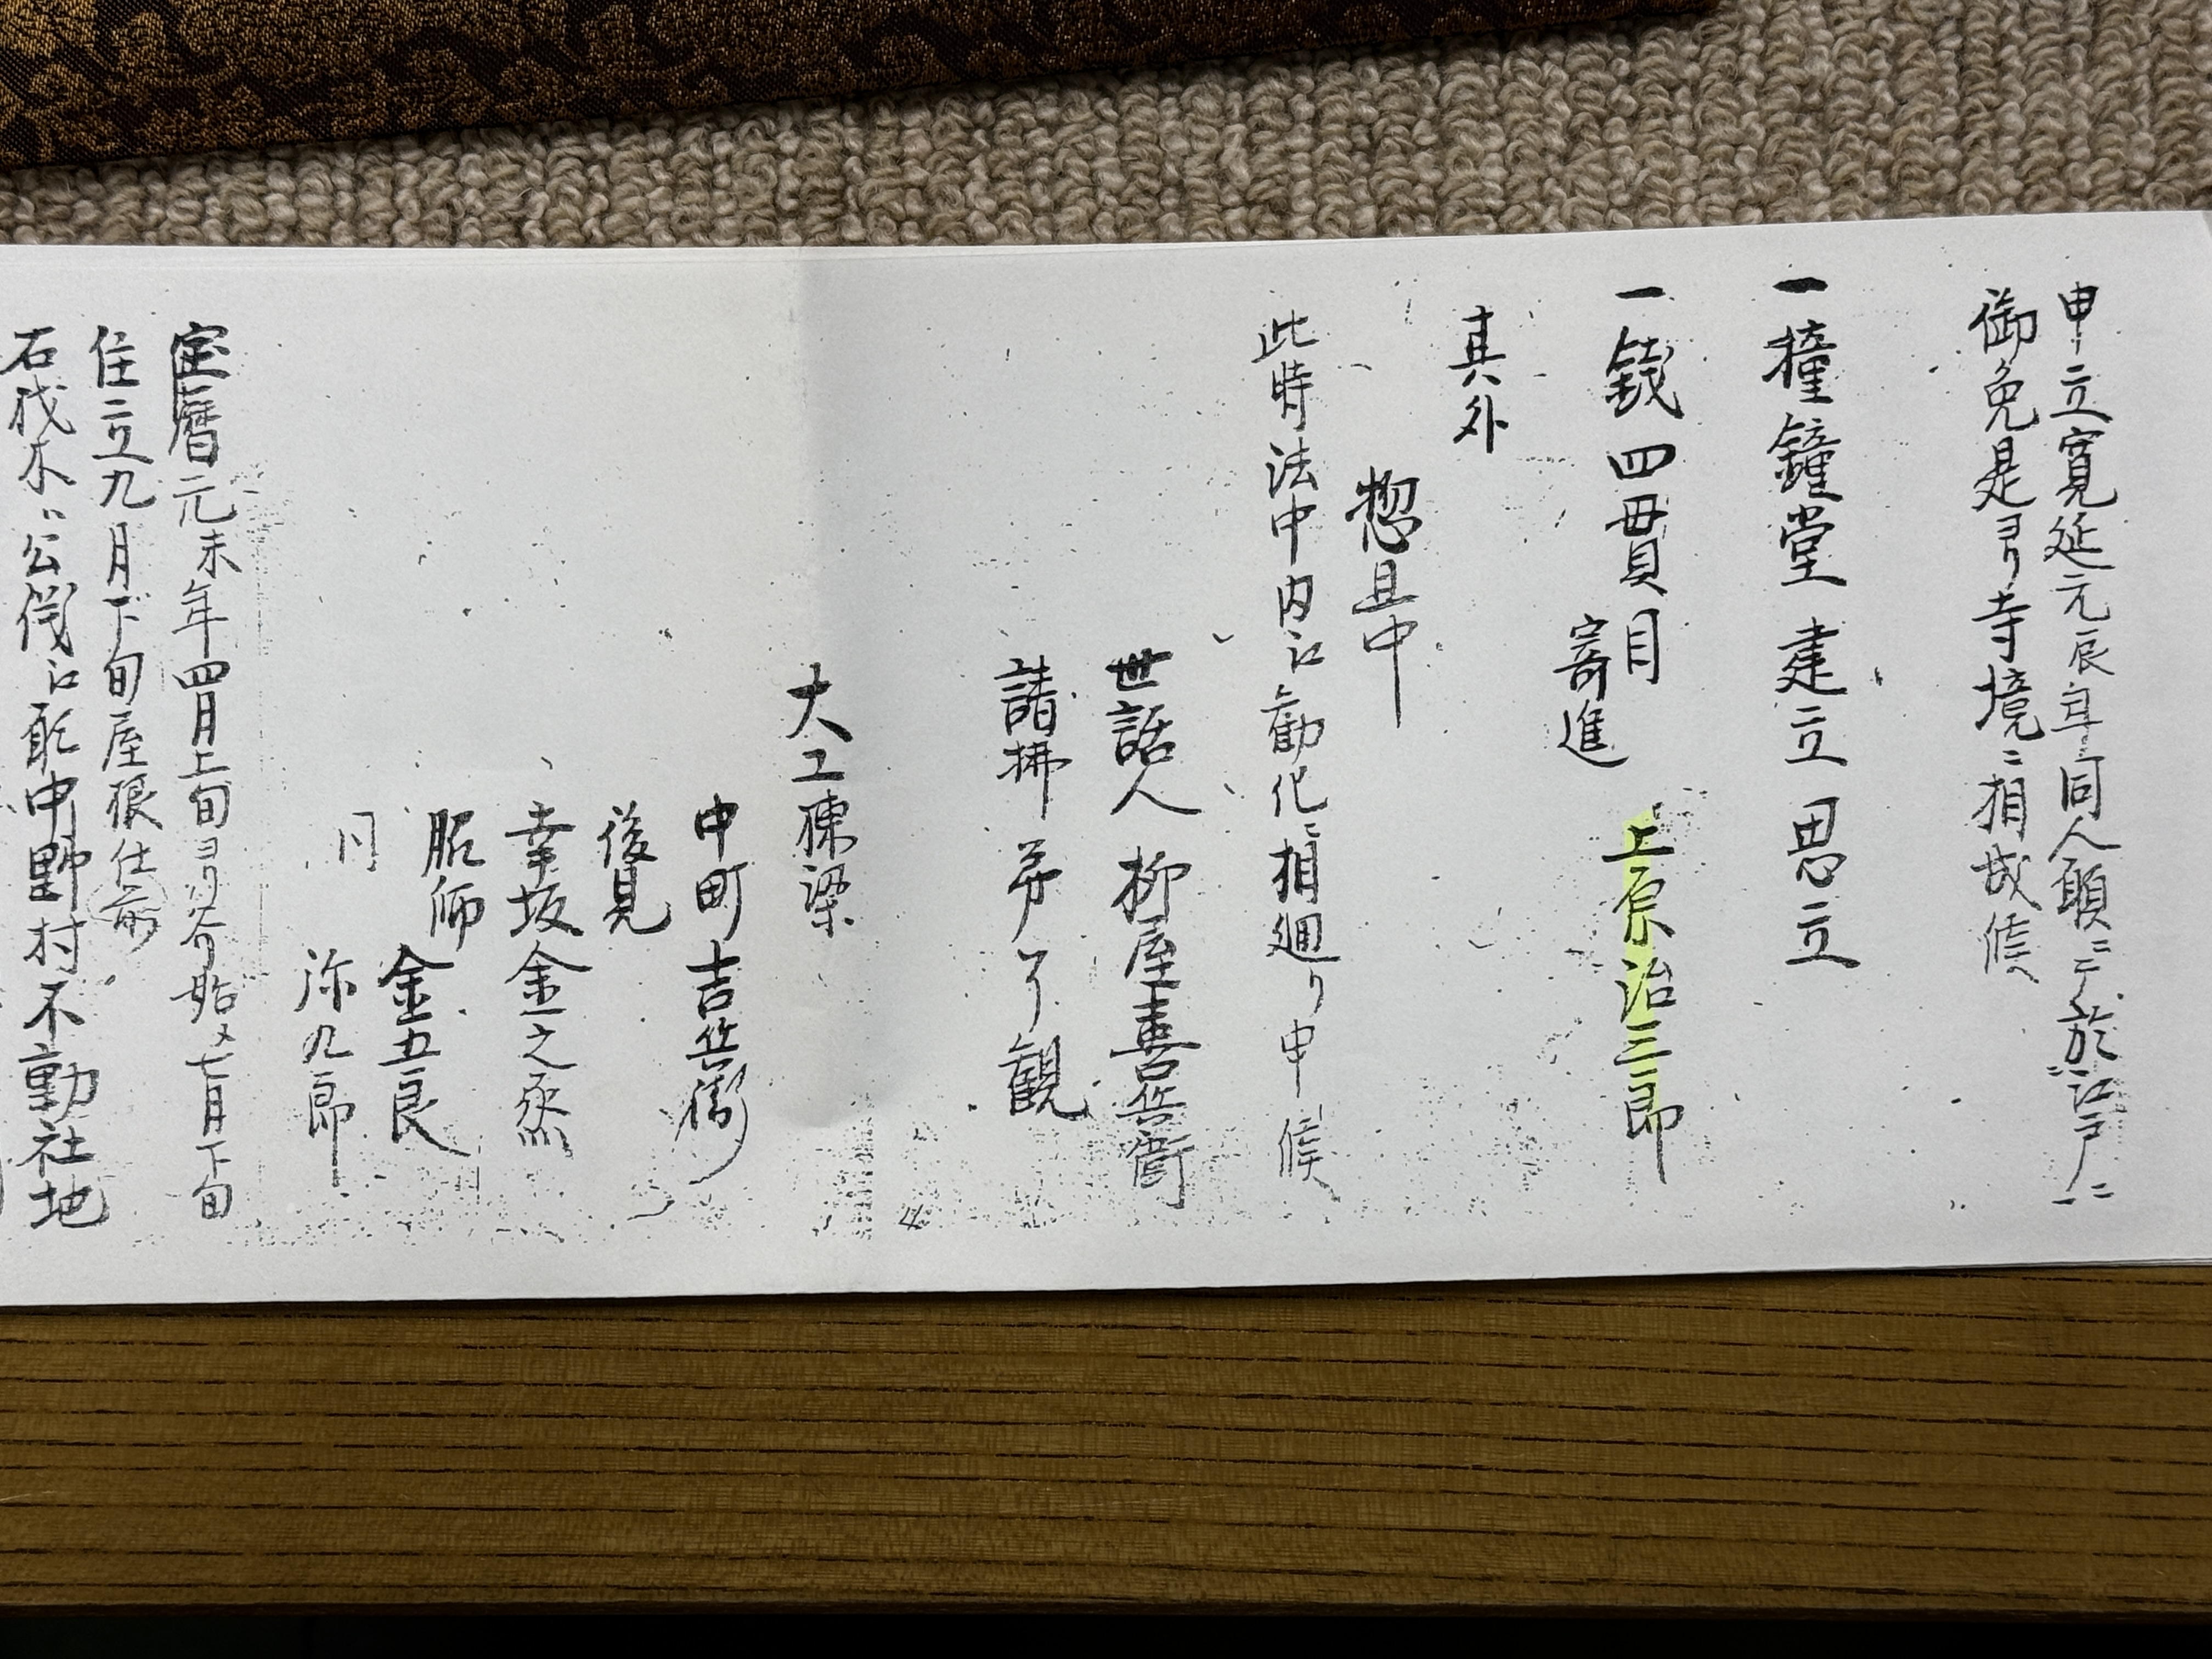 申立寛延元辰年同人願ニテ於江戸ニ
御免是ヨリ寺境ニ相成候
一撞鐘堂建立思立
一銭四貫目 上原治三郎
寄進
其外
惣旦中
此時法中内江勧化ニ相廻リ申候
世話人 柳屋喜兵衛
諸拂 弟子了観
大工棟梁
中町 吉兵衛
後見
幸坂金之烝
脇師 金五良
同 弥九郎
宝暦元未年四月上旬ヨリ 始メ七月下旬
住立九月下旬屋根仕
石伐木 公儀江 中野村不動社地